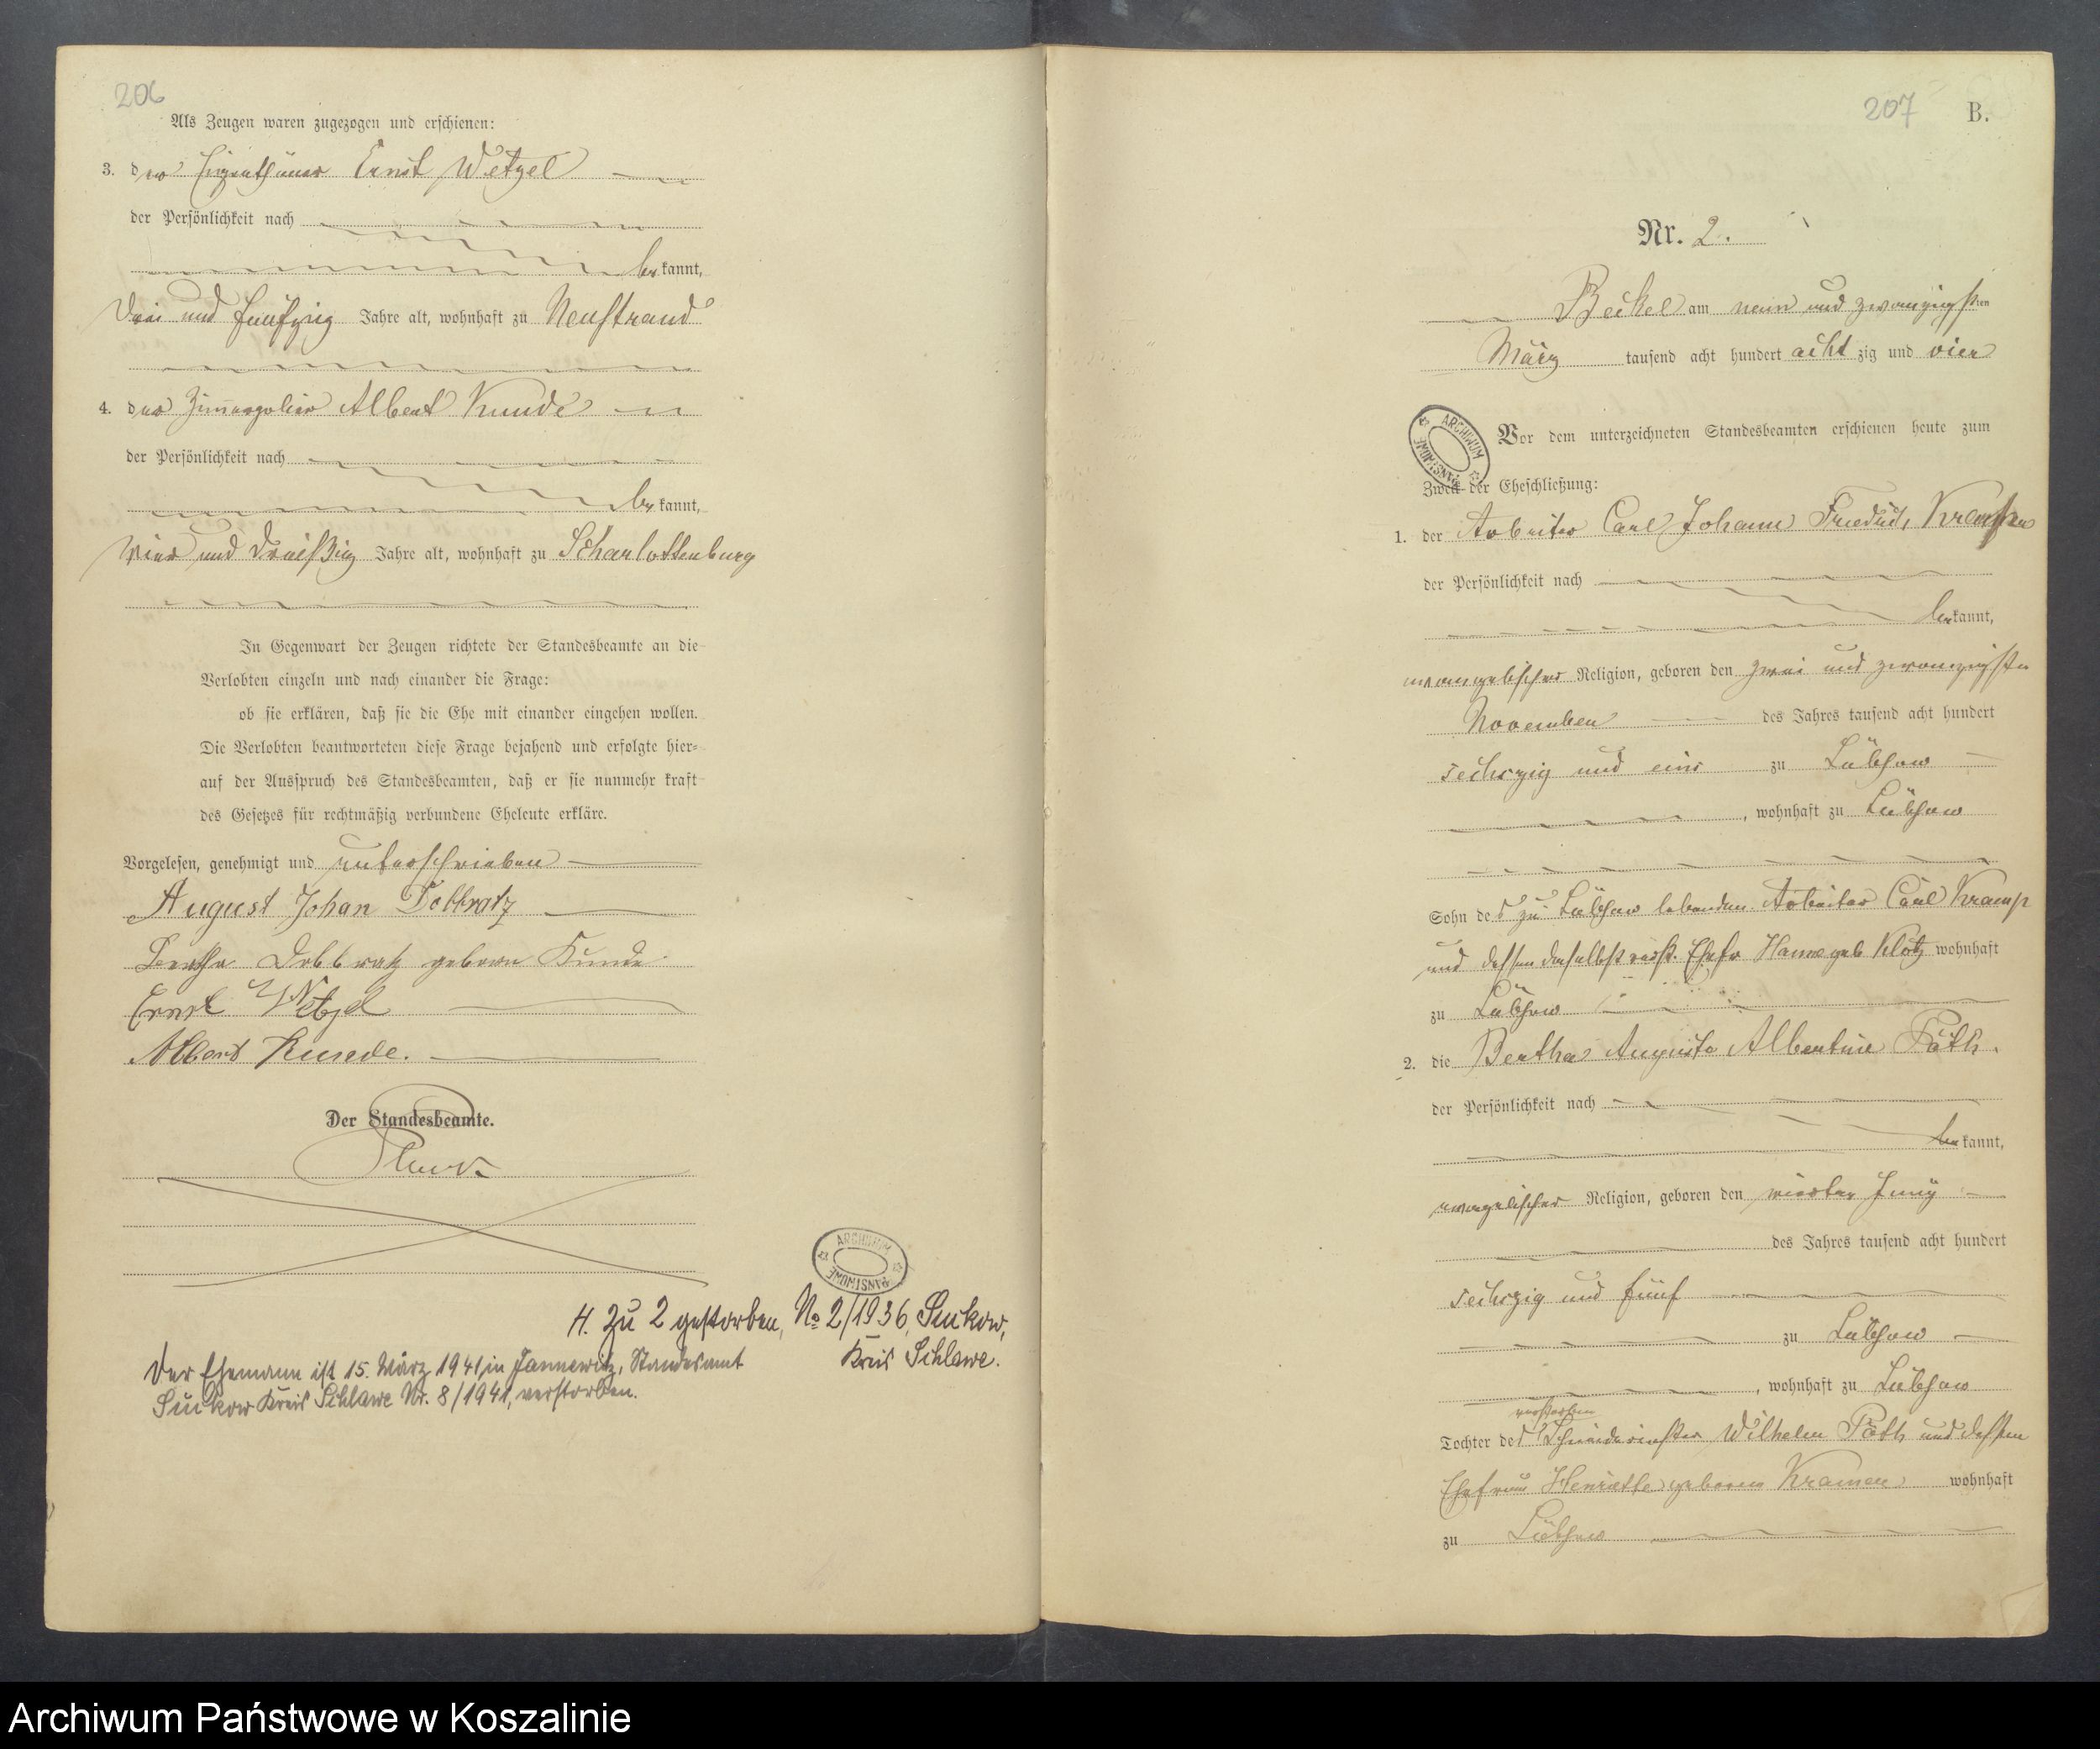 206
Als Zeugen waren zugezogen und erschienen:
3. der Eigenthümer Ernst Wetzel
der Persönlichkeit nach
bekannt,
drei und fünfzig Jahre alt, wohnhaft zu Neustrand
4. der Zimmerpolier Albert Kunde
der Persönlichkeit nach
bekannt,
vier und dreißig Jahre alt, wohnhaft zu Scharlottenburg
In Gegenwart der Zeugen richtete der Standesbeamte an die
Verlobten einzeln und nach einander die Frage:
ob sie erklären, daß sie die Ehe mit einander eingehen wollen.
Die Verlobten beantworteten diese Frage bejahend und erfolgte hier-
auf der Ausspruch des Standesbeamten, daß er sie nunmehr kraft
des Gesetzes für rechtmäßig verbundene Eheleute erkläre.
Vorgelesen, genehmigt und unterschrieben
August Johan Dobbratz
Bertha Dobbratz geborne Kunde
Ernst Wetzel
Albert Kunde.
Der Standesbeamte.
ARCHIWUM PAŃSTWOWE
H. Zu 2 gestorben, No 2/1936, Suckow,
Kreis Schlawe.
Der Ehemann ist 15. März 1941 in Jannewitz, Standesamt
Suckow Kreis Schlawe Nr. 8/1941, verstorben.
207 B.
Nr. 2.
Beckel am neun und zwanzigsten
März tausend acht hundert achtzig und vier
ARCHIWUM PAŃSTWOWE
Vor dem unterzeichneten Standesbeamten erschienen heute zum
Zweck der Eheschließung:
1. der Arbeiter Carl Johann Friedrich
der Persönlichkeit nach
bekannt,
evangelischer Religion, geboren den zwei und zwanzigsten
November des Jahres tausend acht hundert
sechszig und eins zu Lübzow
, wohnhaft zu Lübzow
Sohn des zu Lübzow lebenden Arbeiter Carl Kramp
und dessen daselbst verst. Ehefr geb Klotz wohnhaft
zu Lübzow
2. die Bertha Auguste Albertine Päth.
der Persönlichkeit nach
bekannt,
evangelischer Religion, geboren den vierten Juny
des Jahres tausend acht hundert
sechszig und fünf
zu Lübzow
, wohnhaft zu Lübzow
verstorben
Tochter des Wilhelm Päth und dessen
Ehefrau Henriette geborne Kramer wohnhaft
zu Lübzow
Archiwum Państwowe w Koszalinie